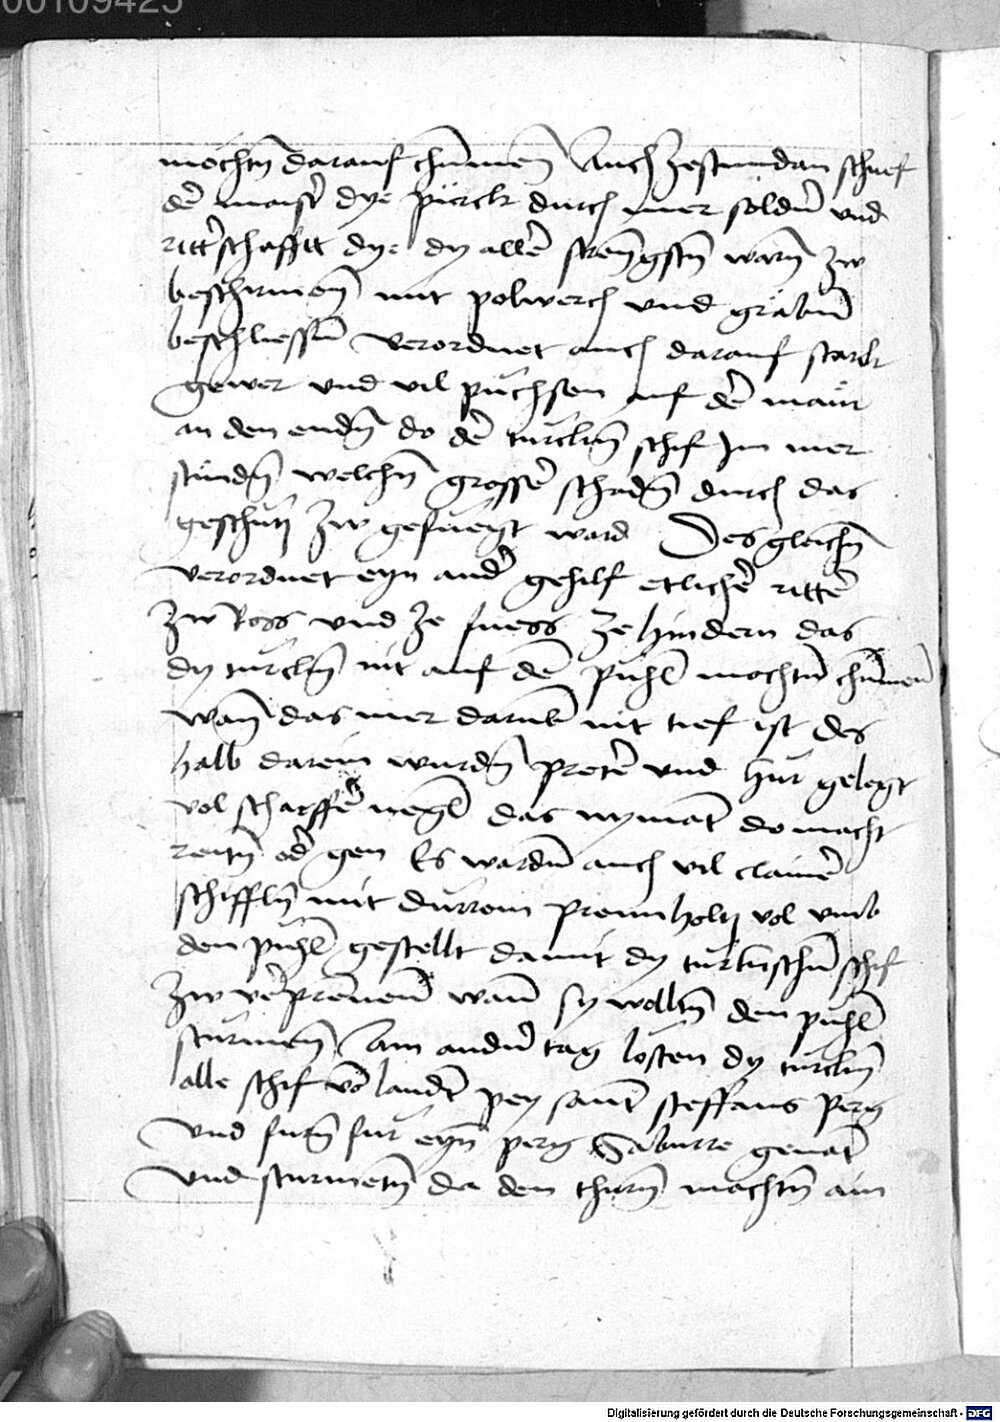 00109425
mochtn darauf chumen Auch zestundan schuef
der maister dye pürck durch mer soldner und
ritterschafftt dye dy aller strengstn warn zw
beschirmen mit polwerch und gräbm
beschliessen verordnet auch darauf starck
gewer und vil püchsen auf der maur
an den endn do der turckn schif im mer
stundn welchn grosser schadn durch das
geschutz zw gefuegt ward Des gleichn
verordnet eyn ander gehilf etlicher ritter
zw Ross und ze fuess ze hindern das
dy turckn nit auf den puhl mochtn chumen
wann das mer darumb nit tief ist des
halb darein wurdn preter und hur gelegt
vol scharffer negl das nymant do macht
reitn oder gen Es wardn auch vil clainer
schiffln mit durrem prennholtz vol umb
den puhl gestellt damit dy turkischn schif
zw verprennen wann sy wolltn den puhl
sturmen Am andern tag losten dy turckn
alle schif von landt pey sant steffans perg
und furn fur eyn perg Saburre genant
und sturmetn da den thurn machtn ain
Digitalisierung gefördert durch die Deutsche Forschungsgemeinschaft - DFG